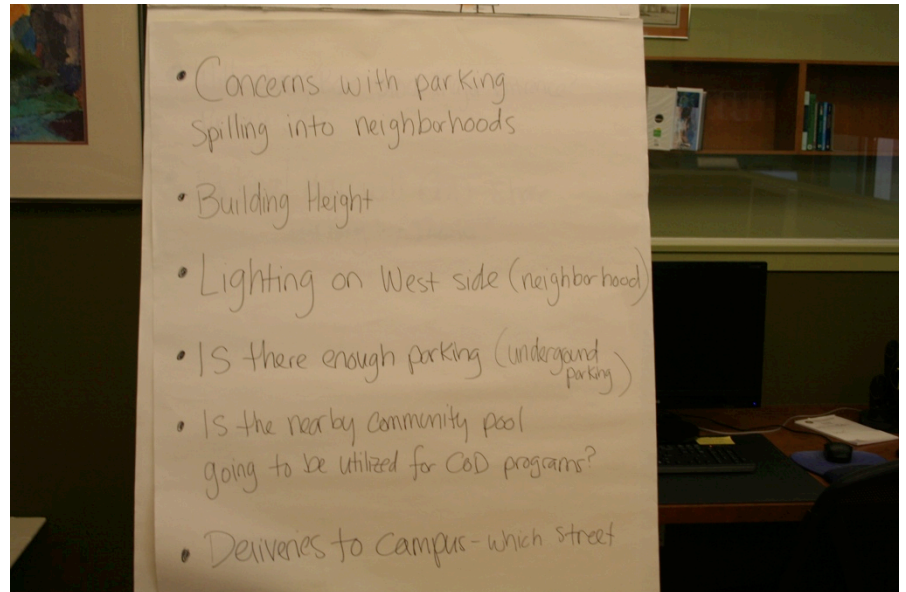 • Concerns with parking
spilling into neighborhoods
• Building Height
• Lighting on West side (neighborhood)
• Is there enough parking (undergound
parking)
• Is the nearby community pool
going to be utilized for CoD programs?
• Deliveries to campus - which street